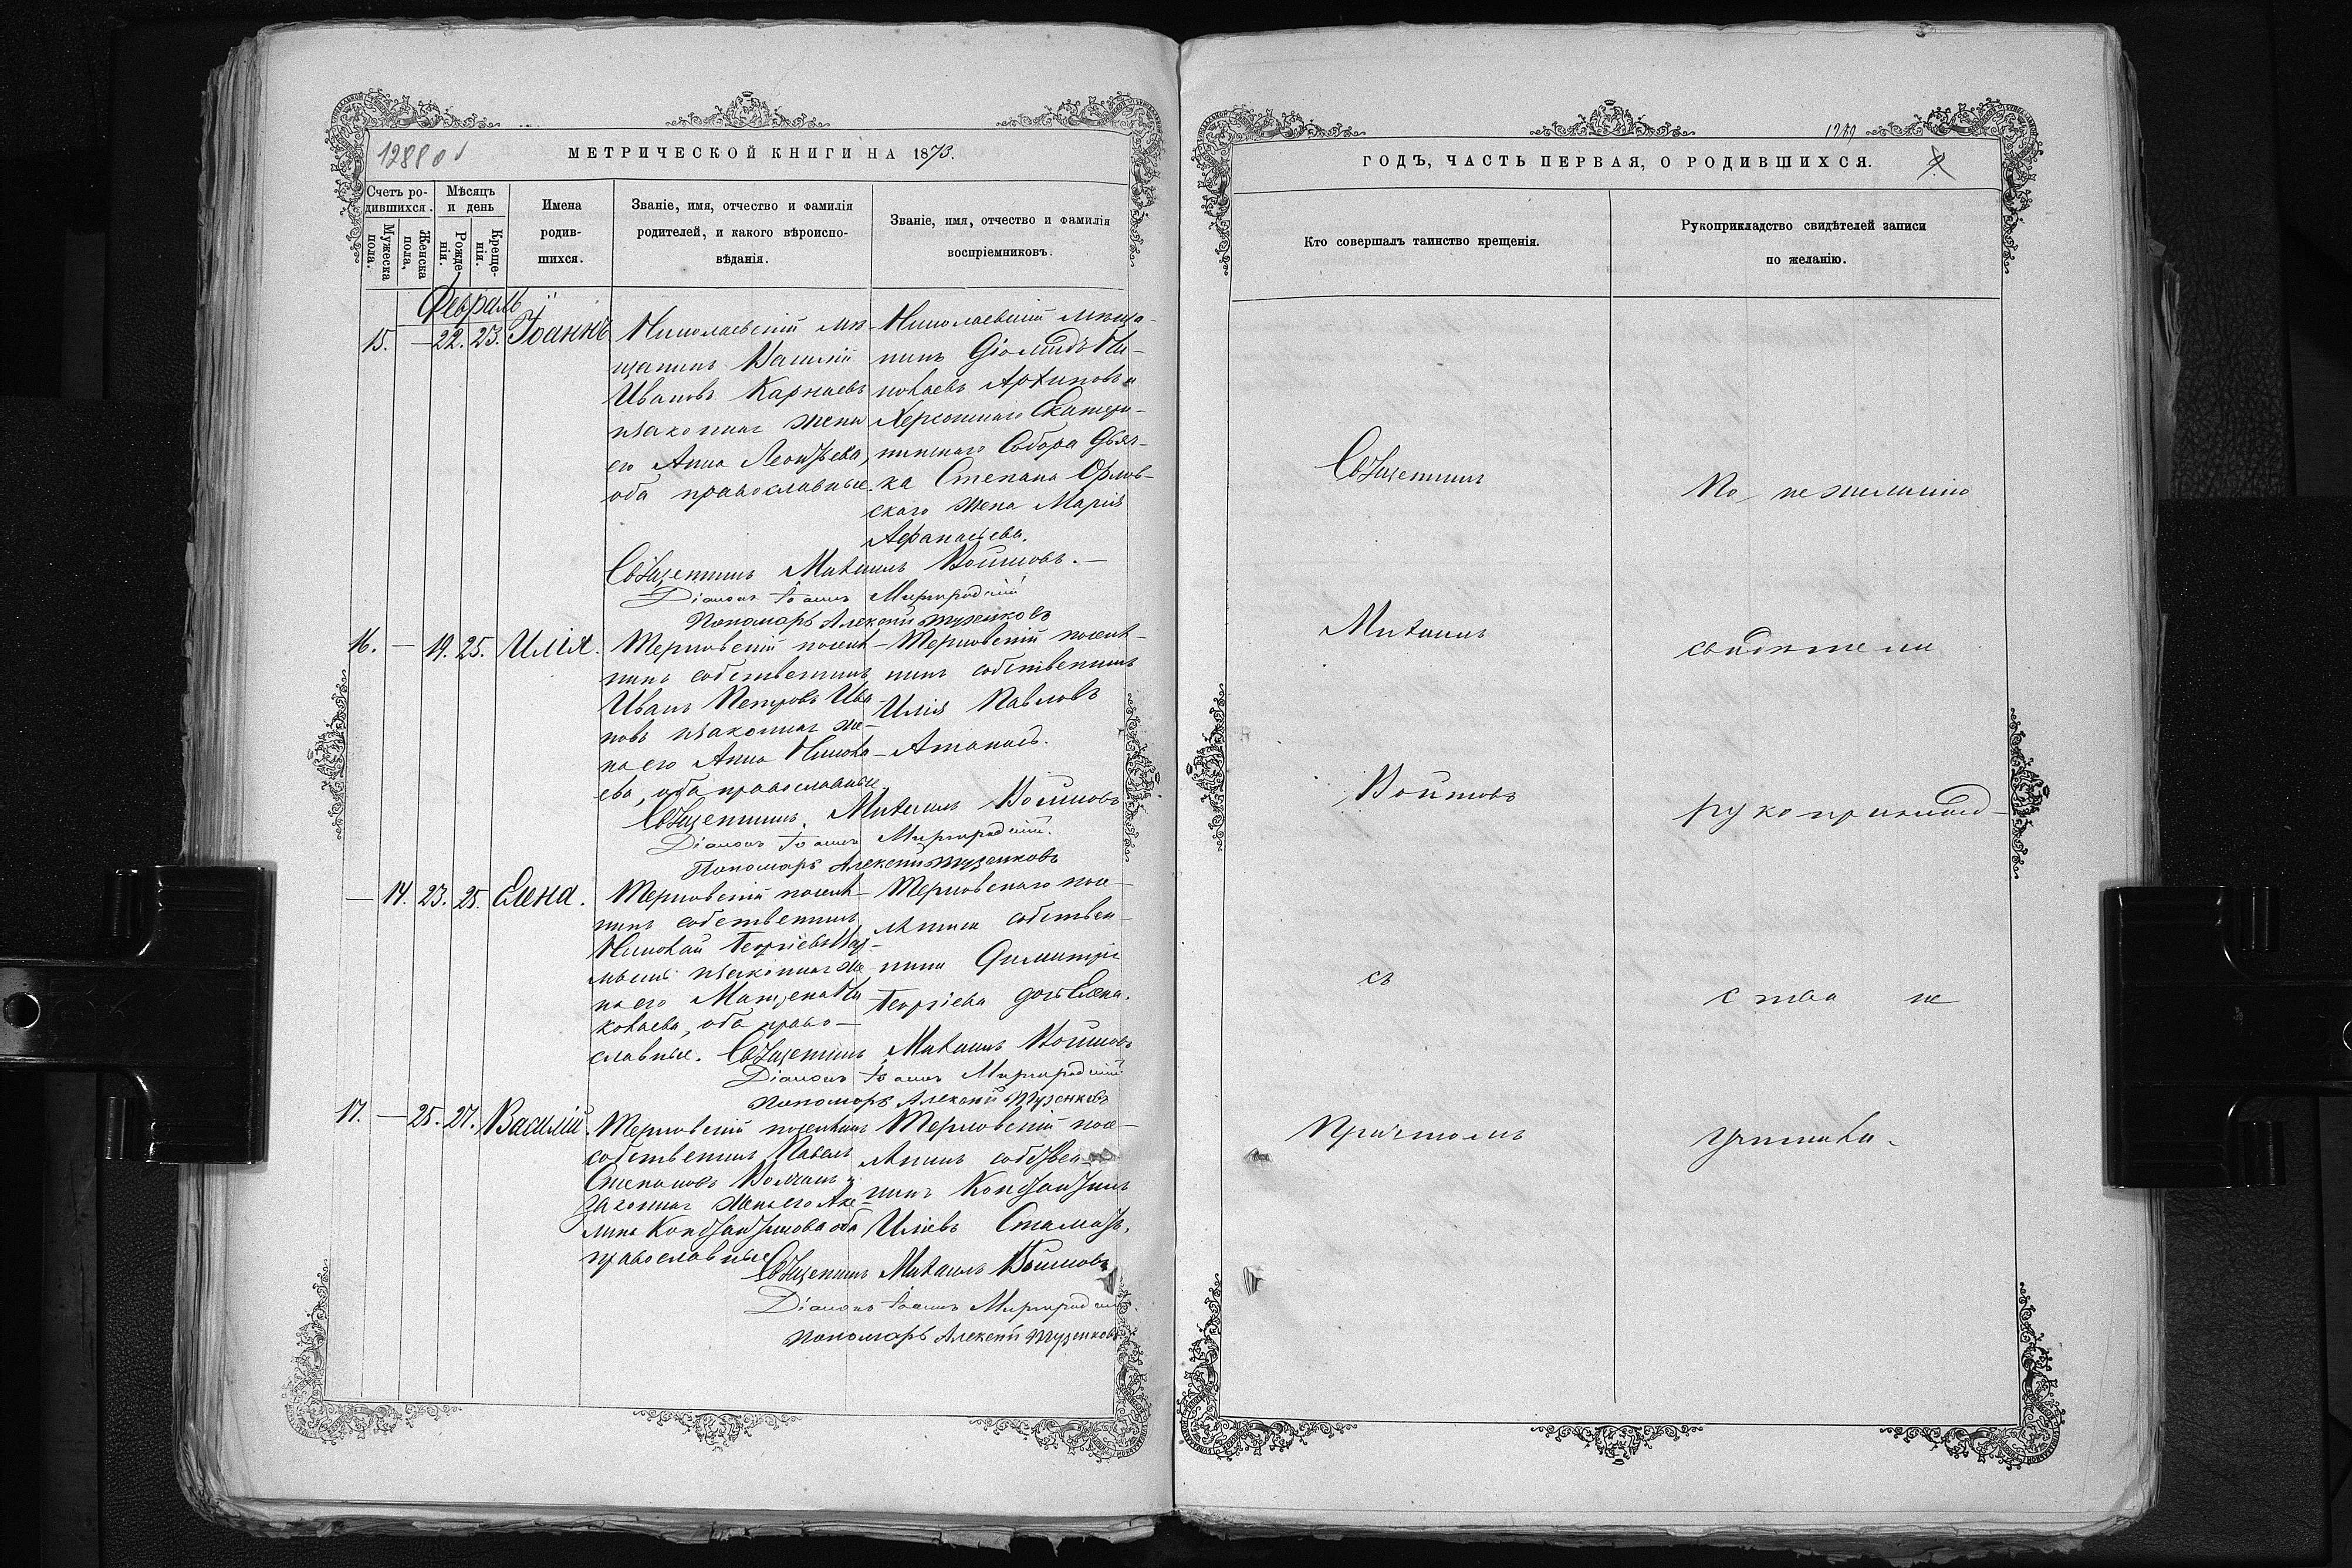 1288 об
МЕТРИЧЕСКОЙ КНИГИ НА 1873.
Счетъ ро-
дившихся.
Мужеска пола.
Женска пола,
Мѣсяцъ
и день
Рожде-
нія.
Креще-
нія.
Имена
родив-
шихся.
Званіе, имя, отчество и фамилія
родителей, и какого вѣроиспо-
вѣданія.
Званіе, имя, отчество и фамилія
воспріемниковъ.
Февраль
15. — 22. 23. Іоаннъ
Николаевскій мѣ-
щанинъ Василій
Ивановъ Карнаевъ
и законная жена
его Анна Леонтьева,
оба православные.
Николаевскій мѣща-
нинъ Діомидъ Ни-
колаевъ Архиповъ и
Херсонскаго Екатери-
нинскаго Собора Дьяч-
ка Степана Орлов-
скаго жена Марія
Афанасіева.
Священникъ Михаилъ Войтовъ. —
Діаконъ Іоаннъ Миргородскій
Пономарь Алексѣй
16. — 19. 25. Илія.
Терновскій поселя-
нинъ собственникъ
Иванъ Петровъ Ива-
новъ и законная же-
на его Анна Никола-
ева, оба православные
Терновскій поселя-
нинъ собственникъ
Илія Павловъ
Атанасъ.
Священникъ Михаилъ Войтовъ
Діаконъ Іоаннъ Миргородскій.
Пономарь Алексѣй
— 14. 23. 25. Елена.
Терновскій поселя-
нинъ собственникъ
Николай Георгіевъ
и законная же-
на его Ни-
колаева, оба право-
славные.
Терновскаго посе-
лянина собствен-
ника Димитрія
Георгіева дочь Елена.
Священникъ Михаилъ Войтовъ
Діаконъ Іоаннъ Миргородскій
Пономарь Алексѣй
17. — 25. 27. Василій.
Терновскій поселянинъ
собственникъ Павелъ
Степановъ Волканъ и
законная жена его Аке-
лина Константинова оба
православные
Терновскій посе-
лянинъ собствен-
никъ Константинъ
Иліевъ Стаматъ.
Священникъ Михаилъ Войтовъ
Діаконъ Іоаннъ Миргородскій.
Пономарь Алексѣй
ГОДЪ, ЧАСТЬ ПЕРВАЯ, О РОДИВШИХСЯ.
Кто совершалъ таинство крещенія.
Рукоприкладство свидѣтелей записи
по желанію.
Священникъ
Михаилъ
Войтовъ
съ
Причтомъ
По нежеланію
свидѣтели
рукоприклад-
ства не
учинили.